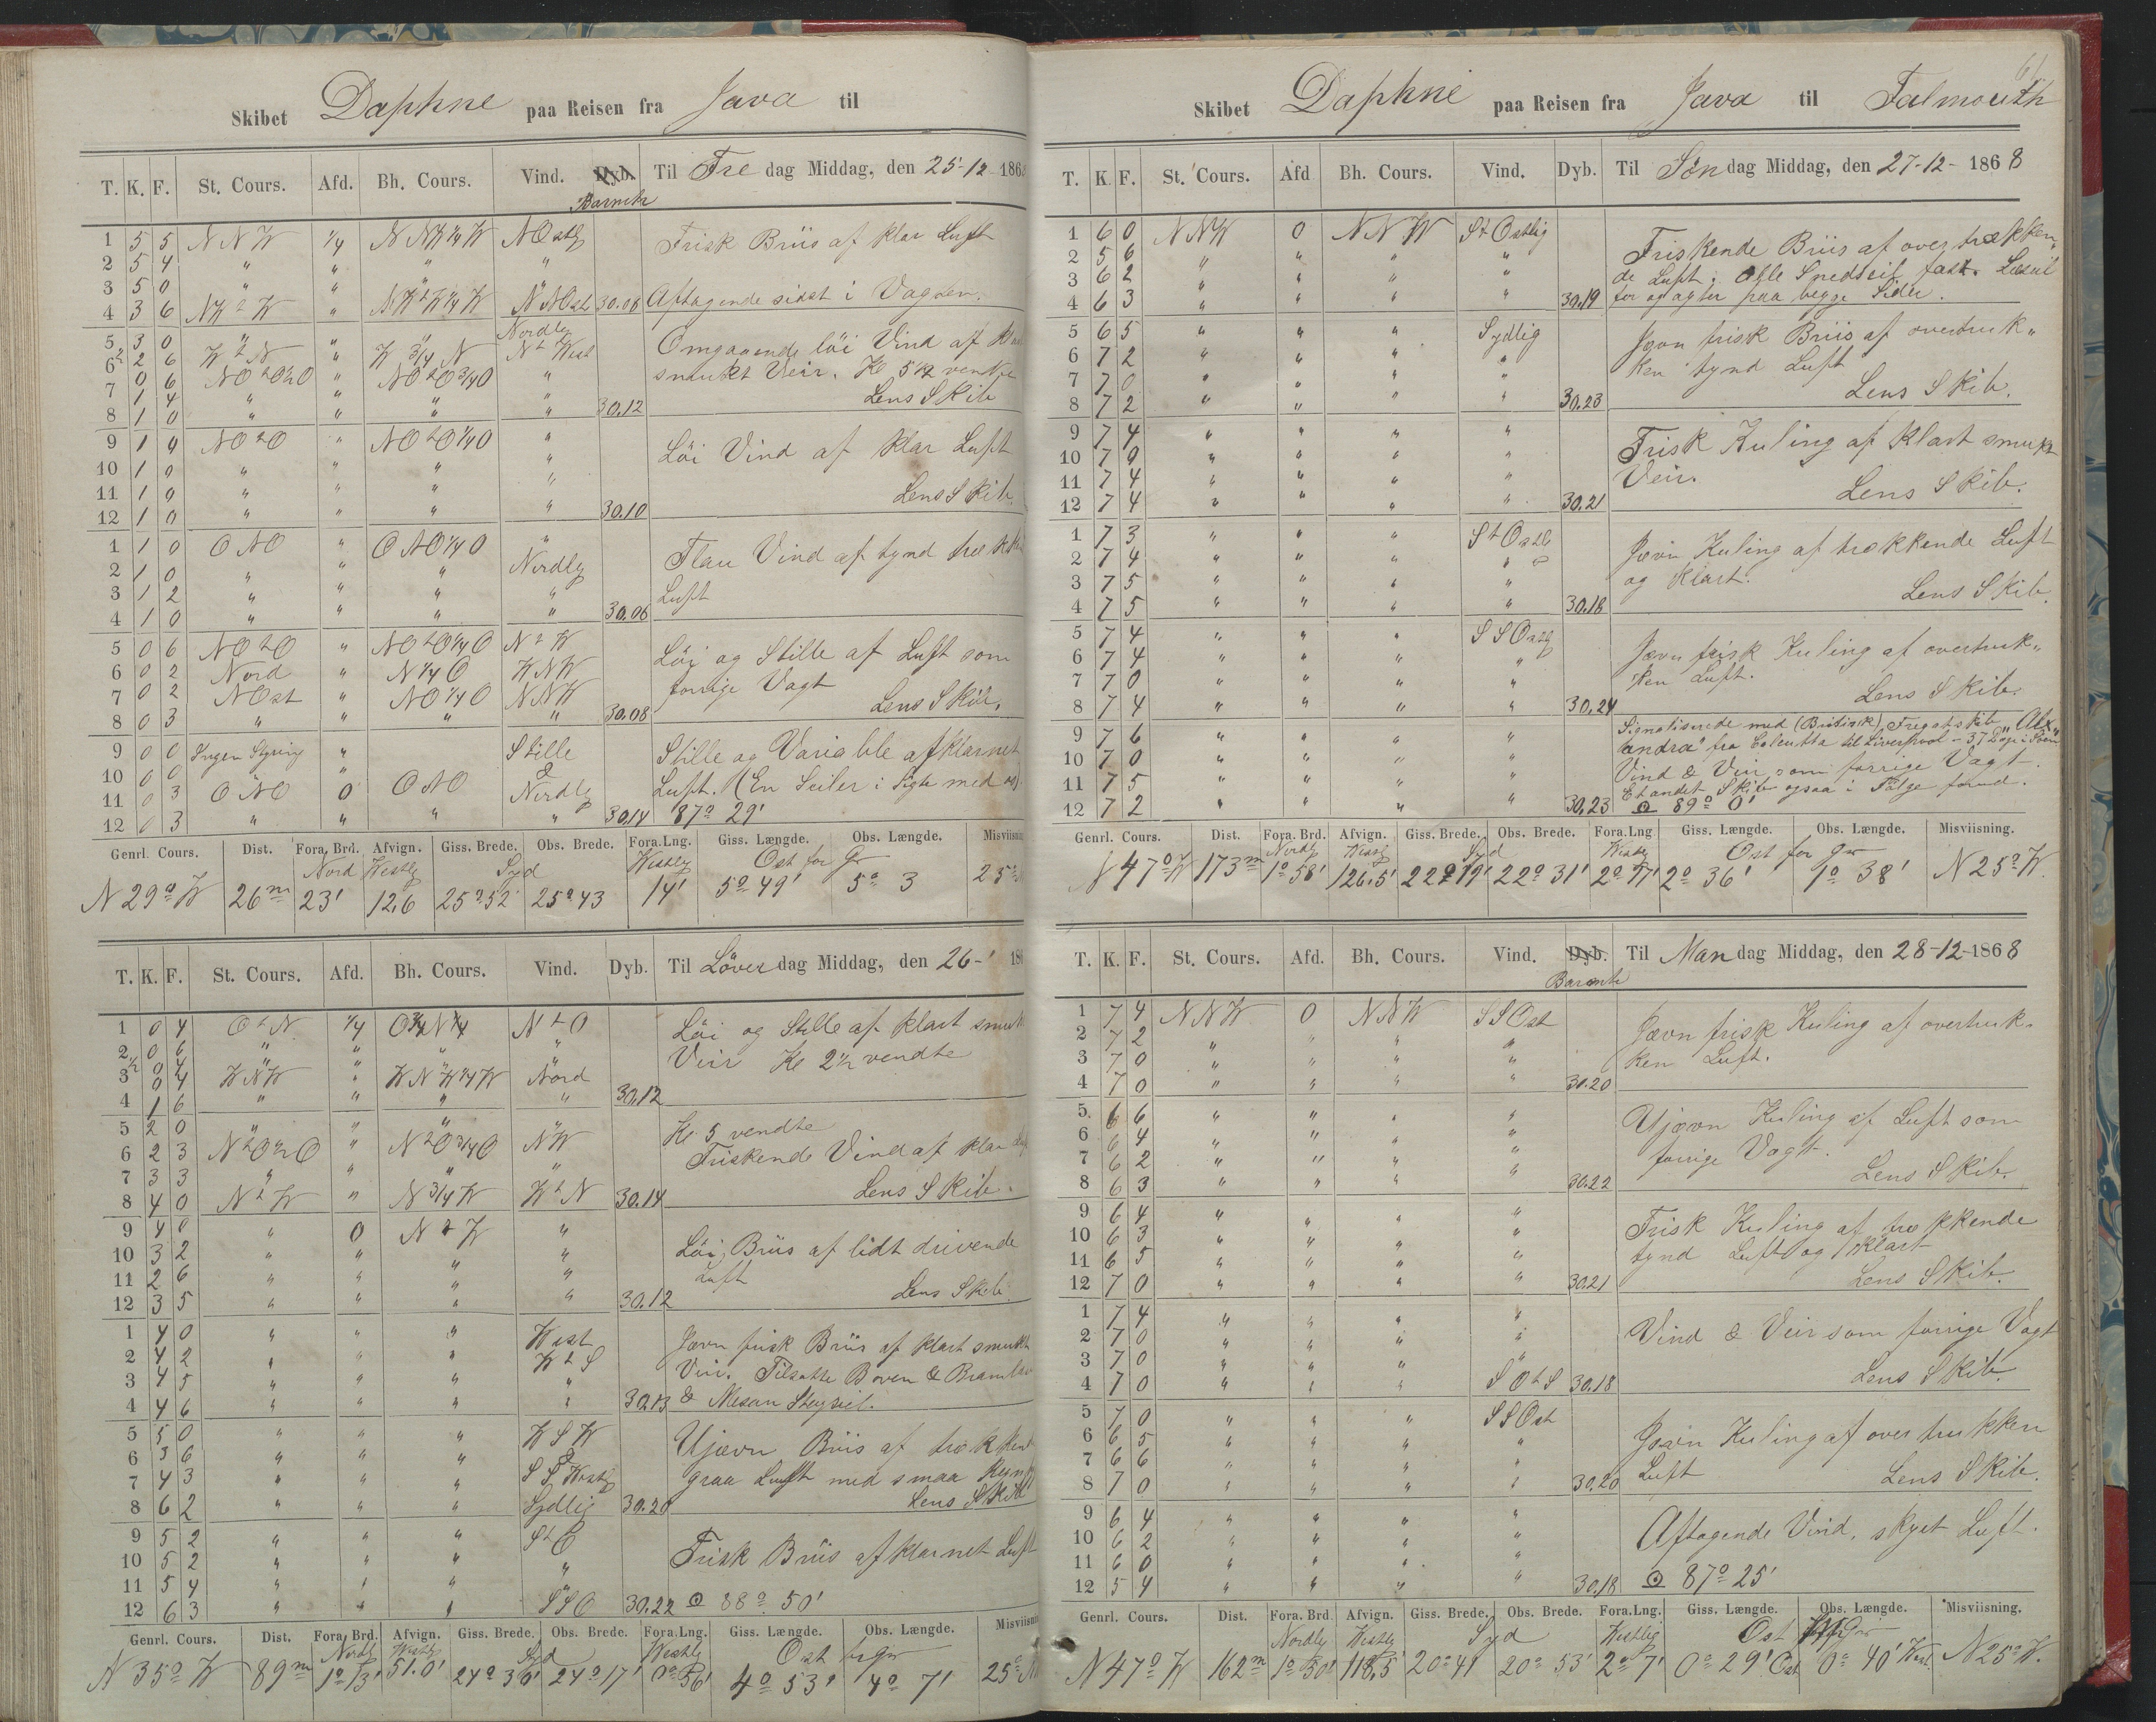 Skibet Daphne paa Reisen fra Java til
T. K. F. St. Cours. Afd. Bh. Cours. Vind. Dyb. Til Fre dag Middag, den 25-12-186
Barmtr
1 5 5 NNW 1/4 NNW 1/4 W NOstlig Frisk Briis af klar Luft
2 5 4 " " " "
3 5 0 " " " "
4 3 6 NWtW " NWtW 1/4 W NNOst 30.08 Aftagende sidst i Vagten.
5 3 0 " " " Nordlig Omgaaende löi Vind af
6 2 6 WtN " W 3/4 N Nt West smukt Veir. Kl 5 1/2 vendte
0 6 NOtO 1/2 O " NOtO 3/4 O "
7 1 4 " " " " Lens Skib
8 1 0 " " " " 30.12
9 1 4 NOtO " NOtO 1/4 O " Löi Vind af klar Luft
10 1 0 " " " "
11 1 0 " " " " Lens Skib.
12 1 0 " " " " 30.10
1 1 0 ONO " ONO 1/4 O " Flau Vind af tynd
2 1 0 " " " Nordlig
3 1 2 " " " " Luft
4 1 0 " " " " 30.06
5 0 6 NOtO " NOtO 1/4 O NtW Löi og Stille af Luft som
6 0 2 Nord " N 1/4 O WNW forrige Vagt
7 0 2 NOst " NO 1/4 O NNW Lens Skib.
8 0 3 " " " " 30.08
9 0 0 Ingen Styring " Stille Stille og Variable af klarnet
10 0 0 " &
11 0 3 ONO 0 ONO Nordlig Luft. (En Seiler i Sigte med os)
12 0 3 " " " " 30.14 87° 29'
Genrl. Cours. Dist. Fora. Brd. Afvign. Giss. Brede. Obs. Brede. Fora.Lng. Giss. Længde. Obs. Længde.
Nord Westlig Syd Westlig Ost for Gr
N 29° W 26m 23' 12,6 25°52' 25°43 14' 5° 49' 5° 3
T. K. F. St. Cours. Afd. Bh. Cours. Vind. Dyb. Til Löver dag Middag, den 26-
1 0 4 OtN 1/4 O 3/4 N 1/4 NtO Löi og Stille af klart
2 0 6 " " " " Veir Kl 2 1/2 vendte
0 4
3 0 4 WNW " WNW 1/4 W Nord
4 1 6 " " " " 30.12
5 2 0 " " " " Kl. 5 vendte
6 2 3 NtO 1/2 O " NtO 3/4 O NW Friskende Vind af klar
7 3 3 " " " "
8 4 0 NtW " N 3/4 W WtN 30.14 Lens Skib.
9 4 0 " 0 NtW " Löi Briis af lidt drivende
10 3 2 " " " "
11 2 6 " " " " Luft
12 3 5 " " " " 30.12 Lens Skib.
1 4 0 " " " West Jævn frisk Briis af klart smukt
2 4 2 " " " WtS Veir. Tilsatte Boven &
3 4 5 " " " "
4 4 6 " " " " 30.13 & Mesan Stagseil.
5 5 0 " " " WSW Ujævn Briis af
6 3 6 " " " &
7 4 3 " " " SSWestlig graa Luft med smaa
8 6 2 " " " Sydlig 30.20 Lens Skib
9 5 2 " " " StO Frisk Briis af klarnet Luft
10 5 2 " " " "
11 5 4 " " " "
12 6 3 " " " SSO 30.22 ⊙ 88° 50'
Genrl. Cours. Dist. Fora. Brd. Afvign. Giss. Brede. Obs. Brede. Fora.Lng. Giss. Længde. Obs. Længde.
Nordlig Westlig Syd Westlig Ost for Gr
N 35° W 89m 1° 13' 51.0' 24° 30' 24° 17' 0° 56' 4° 53' 4° 7'
61
Skibet Daphne paa Reisen fra Java til Falmouth
T. K. F. St. Cours. Afd Bh. Cours. Vind. Dyb. Til Søn dag Middag, den 27-12-1868
1 6 0 NNW 0 NNW StOstlig Friskende Briis af overtrækken-
2 5 6 " " " " de Luft. Alle Smedseil fast. Læseil
3 6 2 " " " "
4 6 3 " " " " 30.19 for og agter paa begge Sider.
5 6 5 " " " Sydlig Jævn frisk Briis af overtruk"
6 7 2 " " " " ken tynd Luft
7 7 0 " " " "
8 7 2 " " " " 30.23 Lens Skib.
9 7 4 " " " " Frisk Kuling af klart smukt
10 7 0 " " " "
11 7 4 " " " " Veir.
12 7 4 " " " " 30.21 Lens Skib.
1 7 3 " " " StOstlig Jævn Kuling af trækkende Luft
2 7 4 " " " "
3 7 5 " " " " og klart.
4 7 5 " " " " 30.18 Lens Skib.
5 7 4 " " " SSOstlig Jævn frisk Kuling af overtruk"
6 7 4 " " " "
7 7 0 " " " " ken Luft.
8 7 4 " " " " 30.24 Lens Skib.
9 7 6 " " " " Signaliserede med (Britisk) Fregatskib "Alex"
andra" fra Calcutta til Liverpool - 37 Dage i Søen
10 7 0 " " " " Vind & Veir som forrige Vagt.
11 7 5 " " " " Et andet Skib ogsaa i Følge forud.
12 7 2 " " " " 30.23 ⊙ 89° 0'
Genrl. Cours. Dist. Fora. Brd. Afvign. Giss. Brede. Obs. Brede. Fora.Lng Giss. Længde. Obs. Længde. Misviisning.
Nordlig Westlig Syd Westlig Ost for Gr
N 47° W 173m 1° 58' 126.5' 22° 19' 22° 31' 2° 17' 2° 36' 1° 38' N 25° W.
T. K. F. St. Cours. Afd. Bh. Cours. Vind. Dyb. Til Man dag Middag, den 28-12-1868
Baromtr
1 7 4 NNW 0 NNW SSOst Jævn frisk Kuling af overtruk-
2 7 2 " " " "
3 7 0 " " " " ken Luft.
4 7 0 " " " " 30.20
5. 6 6 " " " " Ujævn Kuling af Luft som
6 6 4 " " " "
7 6 2 " " " " forrige Vagt.
8 6 3 " " " " 30.22 Lens Skib.
9 6 4 " " " " Frisk Kuling af trækkende
10 6 3 " " " "
11 6 5 " " " " tynd Luft og klart
12 7 0 " " " " 30.21 Lens Skib.
1 7 4 " " " " Vind & Veir som forrige Vagt
2 7 0 " " " "
3 7 0 " " " "
4 7 0 " " " SOtS 30.18 Lens Skib.
5 7 0 " " " SSOst Jævn Kuling af overtrukken
6 6 5 " " " "
7 6 6 " " " " Luft
8 7 0 " " " " 30.20 Lens Skib.
9 6 4 " " " " Aftagende Vind, skyet Luft.
10 6 2 " " " "
11 6 0 " " " "
12 5 4 " " " " 30.18 ⊙ 87° 25'
Genrl. Cours. Dist. Fora. Brd. Afvign. Giss. Brede. Obs. Brede. Fora.Lng. Giss. Længde. Obs. Længde. Misviisning.
Nordlig Westlig Syd Westlig Ost Gr
N 47° W 162m 1° 50' 118,5' 20° 41 20° 53' 2° 7' 0° 29' Ost 0° 40' West. N 25° W.